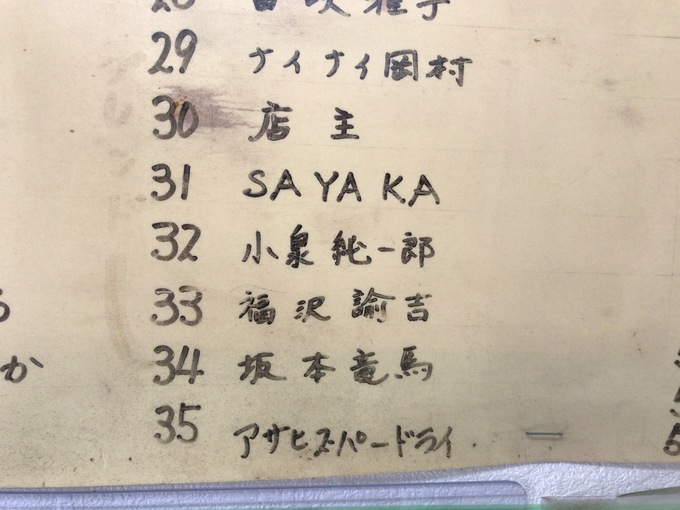 29 ナイナイ岡村
30 店主
31 SAYAKA
32 小泉純一郎
33 福沢諭吉
34 坂本竜馬
か
35 アサヒスーパードライ